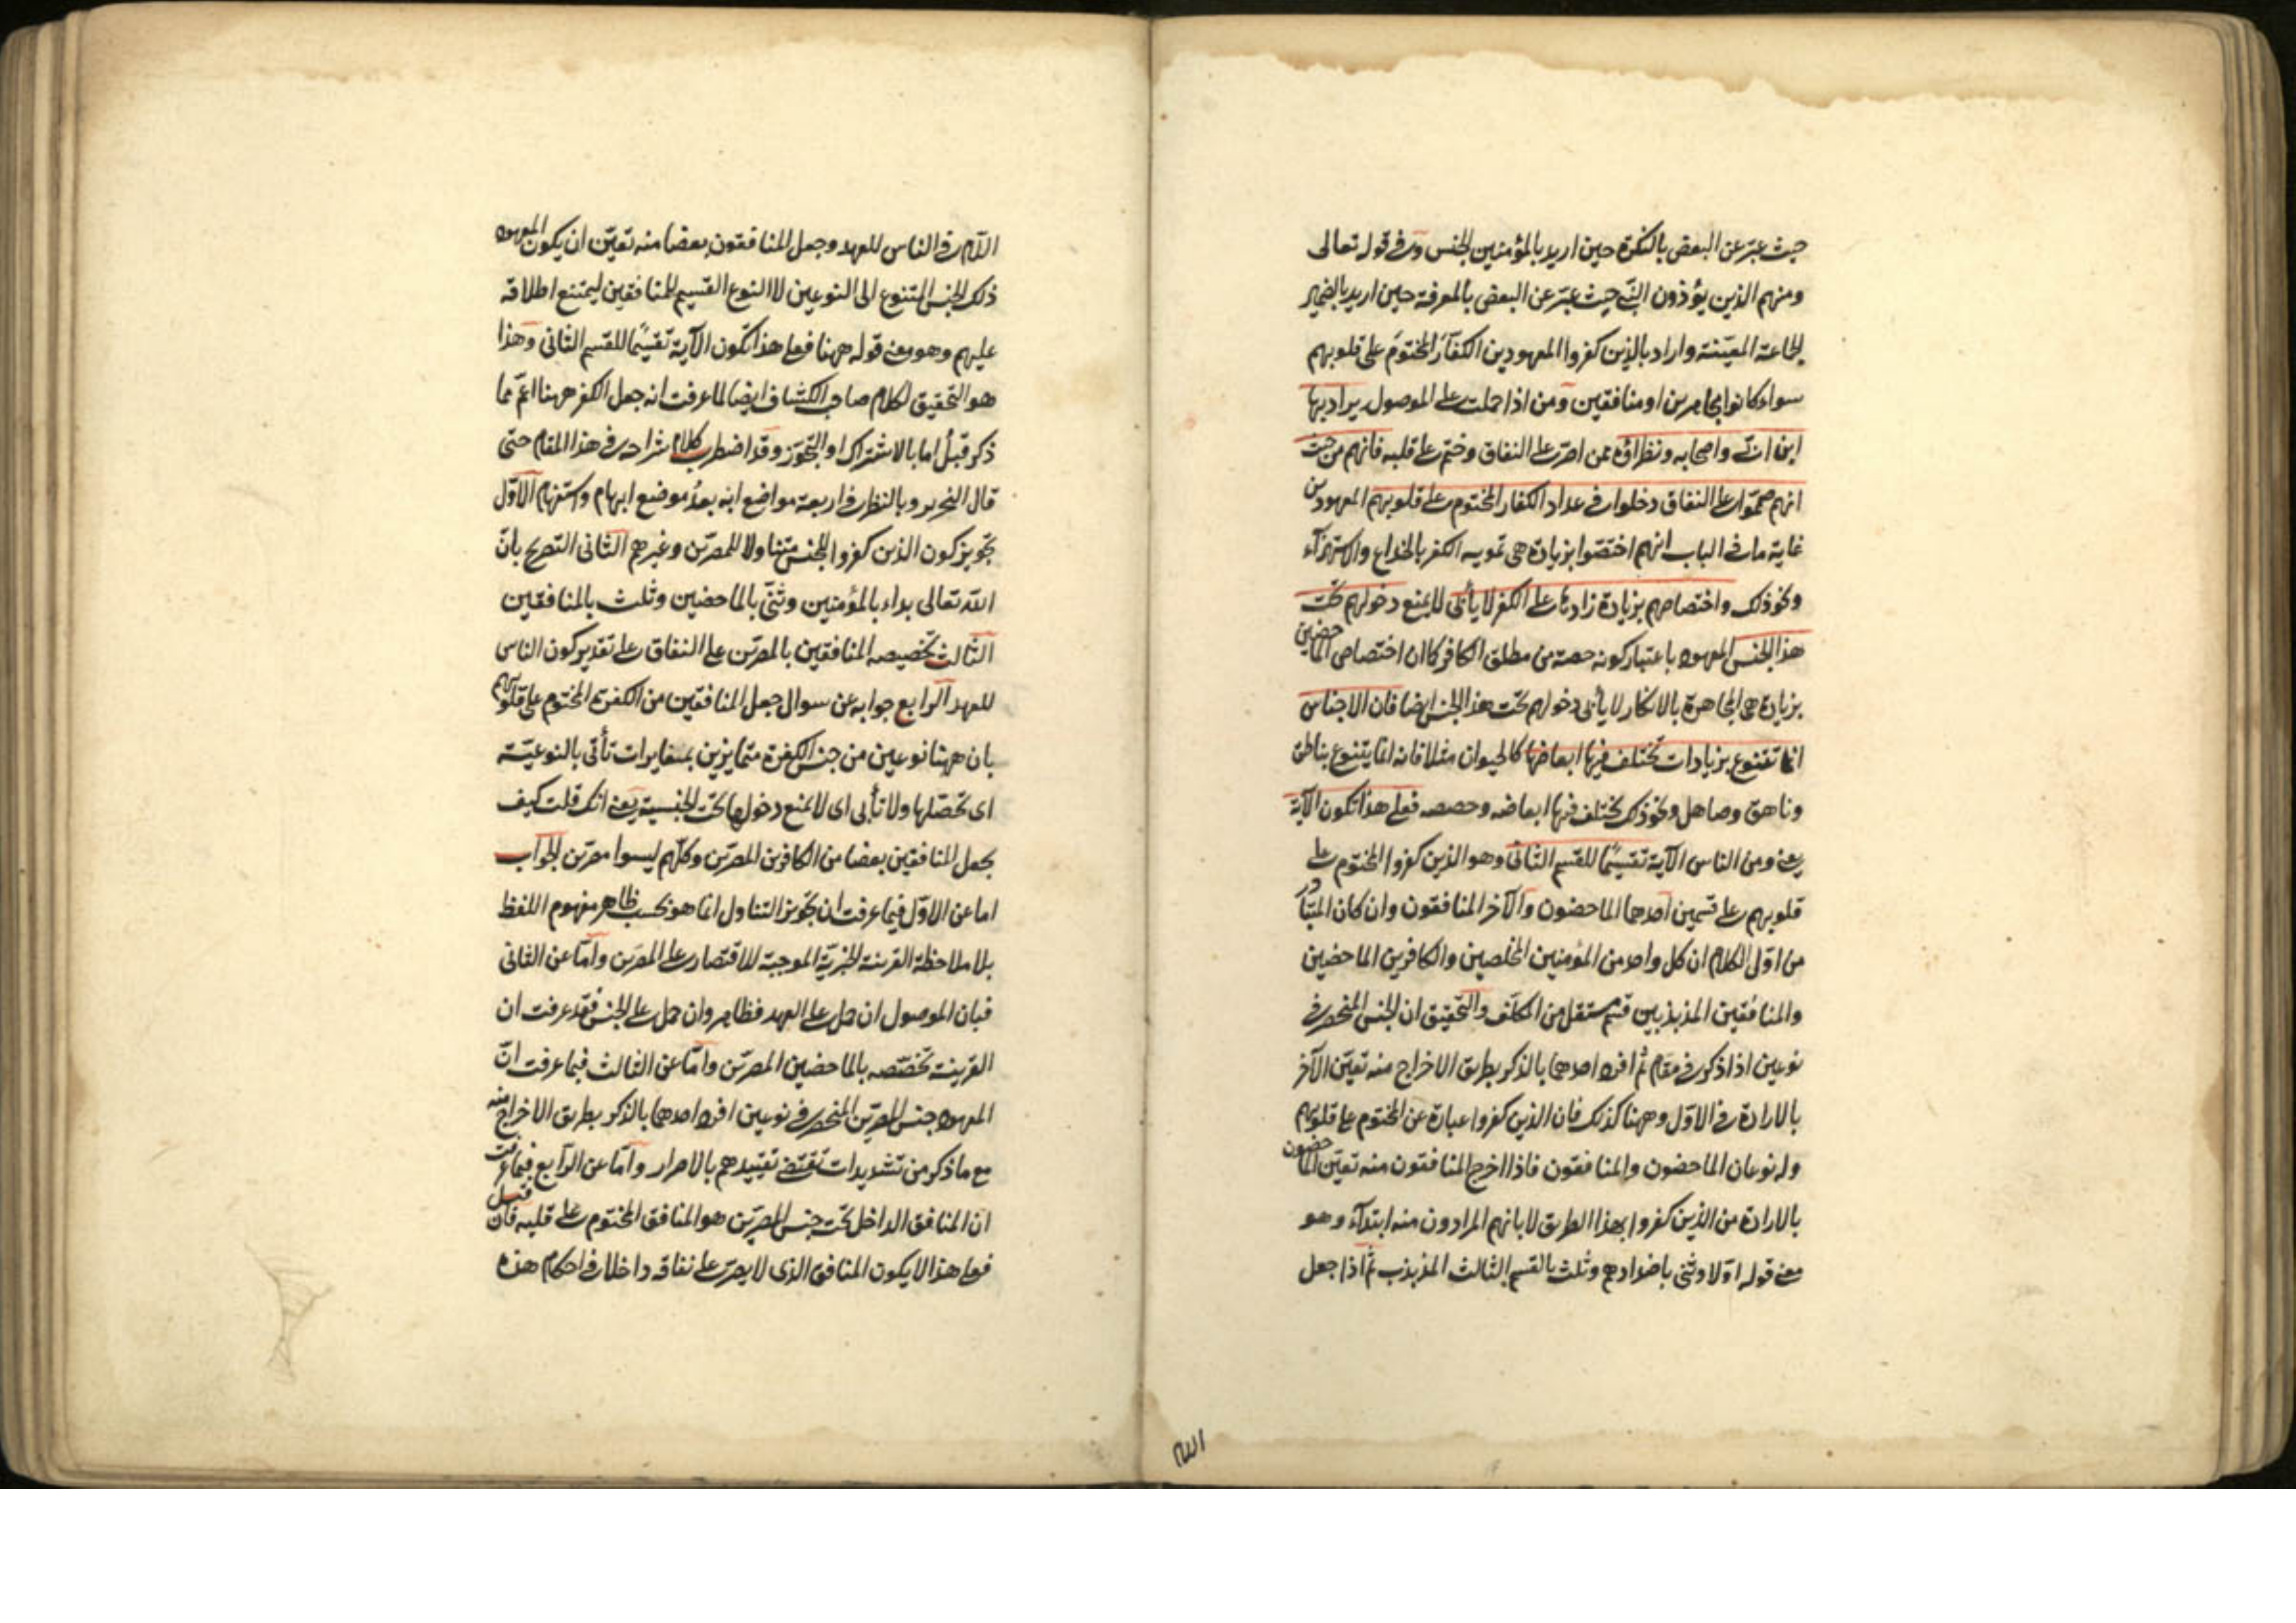 حيث عبّر عن البعض بالنكرة حين اريد بالمؤمنين الجنس وفى قوله تعالى
ومنهم الذين يؤذون النبى حيث عبّر عن البعض بالمعرفة حين اريد بالضمير
الجماعة المعيّنة واراد بالذين كفروا المعهودين الكفّار المختوم على قلوبهم
سواء كانوا مجاهرين او منافقين ومن اذا حملت على الموصول يراد بها
ابن ابىّ واصحابه ونظراؤه ممن اصرّ على النفاق وختم على قلبه فانهم من حيث
انهم صمّموا على النفاق دخلوا فى عداد الكفار المختوم على قلوبهم المعهودين
غاية ما فى الباب انهم اختصّوا بزيادة هى تمويه الكفر بالخداع والاستهزآء
ونحو ذلك واختصاصهم بزيادة زادوها على الكفر لا يأبى لا يمنع دخولهم تحت
هذا الجنس المعهود باعتبار كونه حصة من مطلق الكافر كما ان اختصاص الماحضين
بزيادة هى المجاهرة بالانكار لا يأبى دخولهم تحت هذا الجنس ايضا فان الاجناس
انما تتنوع بزيادات تختلف فيها ابعاضها كالحيوان مثلا فانه انما يتنوع بناطق
وناهق وصاهل ونحو ذلك تختلف فيها ابعاضه وحصصه فعلى هذا تكون الآية
يعنى ومن الناس الآية تقسيمًا للقسم الثانى وهو الذين كفروا المختوم على
قلوبهم على قسمين احدهما الماحضون والآخر المنافقون وان كان المتبادر
من اوّل الكلام ان كل واحد من المؤمنين المخلصين والكافرين الماحضين
والمنافقين المذبذبين قسم مستقل من المكلّف والتحقيق ان الجنس المنحصر فى
نوعين اذا ذكر فى مقام ثم افرد احدهما بالذكر بطريق الاخراج منه تعيّن الآخر
بالارادة فى الاوّل وههنا كذلك فان الذين كفروا عبارة عن المختوم على قلوبهم
وله نوعان الماحضون والمنافقون فاذا اخرج المنافقون منه تعيّن الماحضون
بالارادة من الذين كفروا بهذا الطريق لا بانهم المرادون منه ابتدآء وهو
معنى قوله اوّلا وثنى باضدادهم وثلث بالقسم الثالث المذبذب ثم اذا جعل
اللام
اللام فى الناس للعهد وجعل المنافقون بعضا منه تعيّن ان يكون المعهود
ذلك الجنس المتنوع الى النوعين لا النوع القسيم للمنافقين ليمتنع اطلاقه
عليهم وهو معنى قوله ههنا فعلى هذا تكون الآية تقسيمًا للقسم الثانى وهذا
هو التحقيق لكلام صاحب الكشاف ايضا لما عرفت انه جعل الكفر ههنا اعمّ مما
ذكر قبلُ اما بالاشتراك او التجوّز وقد اضطرب كلام شراحه فى هذا المقام حتى
قال النحرير وبالنظر فى اربعة مواضع انه بعدُ موضع ابهام واستفهام الاوّل
تجويز كون الذين كفروا للجنس متناولا للمصرّين وغيرهم الثانى التصريح بانّ
الله تعالى بداء بالمؤمنين وثنّى بالماحضين وثلث بالمنافقين
الثالث تخصيصه المنافقين بالمصرّين على النفاق على تقدير كون الناس
للعهد الرابع جوابه عن سوال جعل المنافقين من الكفرة المختوم على قلوبهم
بان ههنا نوعين من جنس الكفرة متمايزين بمغايرات تأتى بالنوعيّة
اى تحصّلها ولا تأبى اى لا تمنع دخولها تحت الجنسية يعنى انك قلت كيف
يجعل المنافقين بعضا من الكافرين المصرّين وكلّهم ليسوا مصرّين الجواب
اما عن الاوّل فبما عرفت ان تجويز التناول انما هو بحسب ظاهر مفهوم اللفظ
بلا ملاحظة القرينة الخبريّة الموجبة للاقتصار على المصرّين وامّا عن الثانى
فبان الموصول ان حمل على العهد فظاهر وان حمل على الجنس فقد عرفت ان
القرينة تخصّصه بالماحضين المصرّين وامّا عن الثالث فبما عرفت انّ
المعهود جنس المصرّين المنحصر فى نوعين افرد احدهما بالذكر بطريق الاخراج منه
مع ما ذكر من تشديدات تقتضى تقييدهم بالاصرار وامّا عن الرابع فبما عرفت
ان المنافق الداخل تحت جنس المصرّين هو المنافق المختوم على قلبه فان قيل
فعلى هذا لا يكون المنافق الذى لا يصرّ على نفاقه داخلا فى احكام هذه